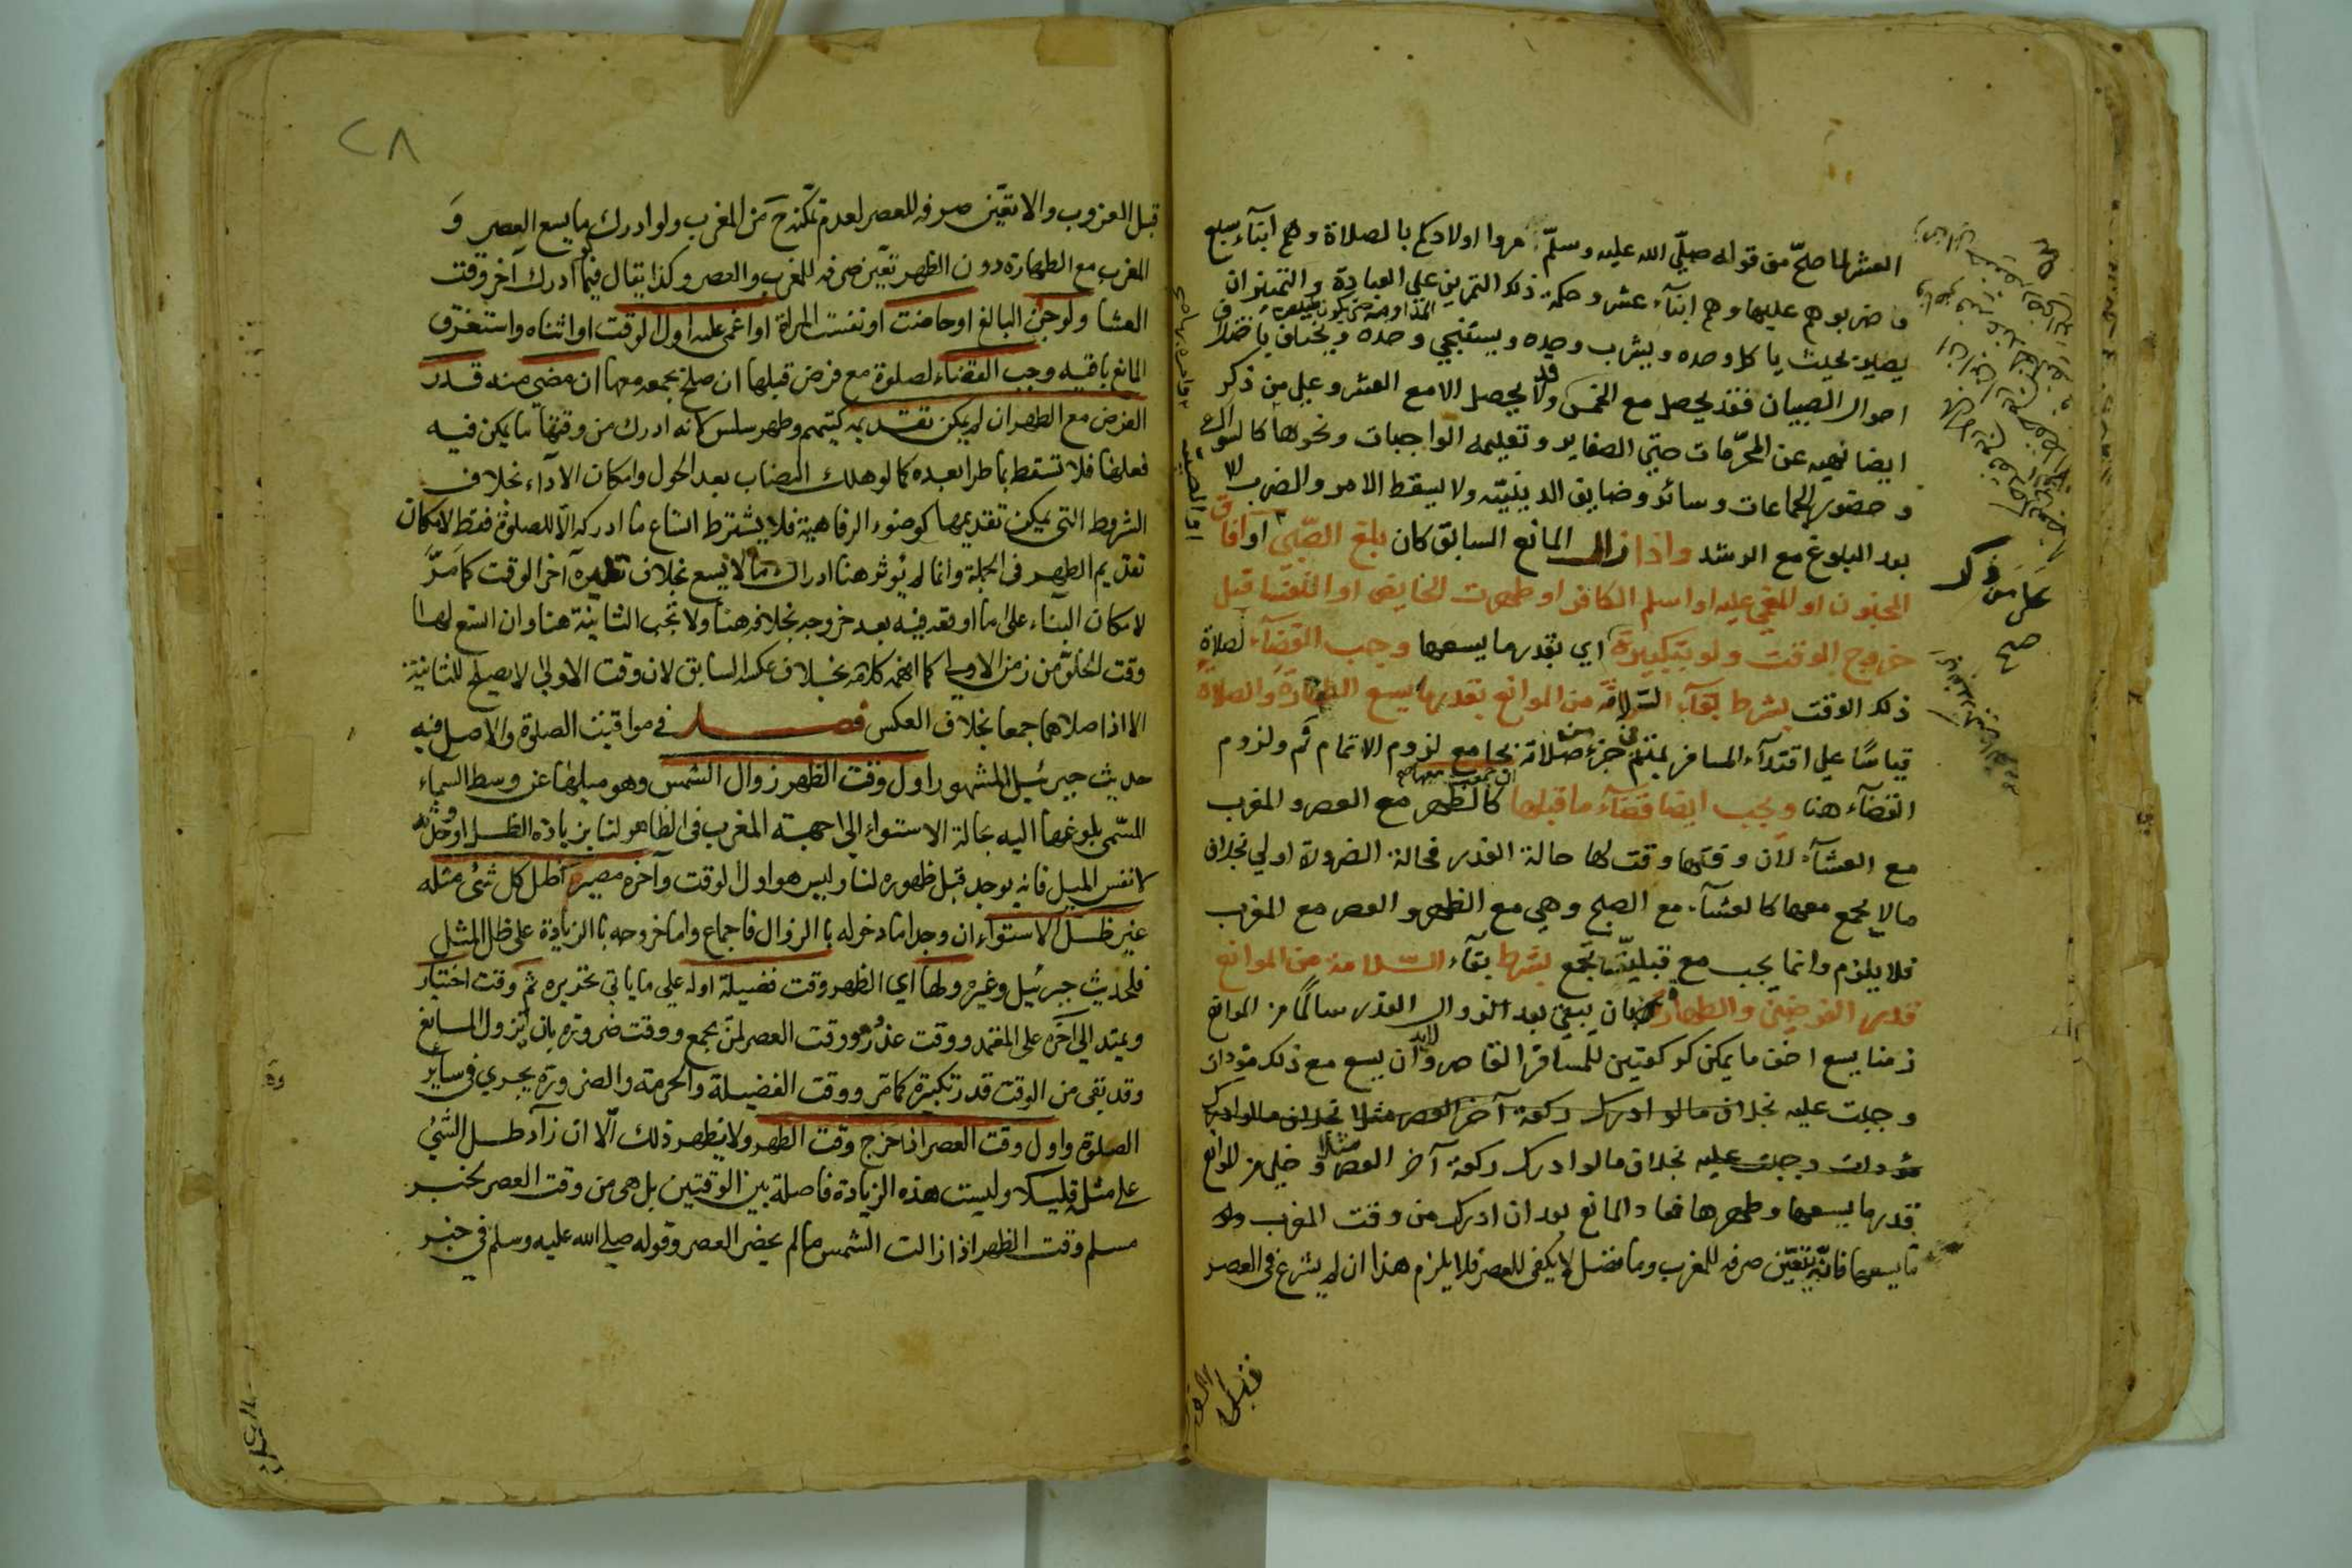 العشر لما صحّ من قوله صلّي الله عليه وسلمّ مروا اولادكم بالصلاة وهم ابنآء سبع
واضربوهم عليها وهم ابنآء عشر وحكمة ذلك التمرين علي العبادة والتمييز ان
يصير بحيث ياكل وحده ويشرب وحده ويستنجي وحده ويختلف باختلاف
احوال الصبيان فقد يحصل مع الخمس وقد لا يحصل الا مع العشر وعلي من ذكر
ايضا نهيه عن المحرّمات حتي الصغاير وتعليمه الواجبات ونحوها كالسواك
وحضور الجماعات وسائر وضايق الدينيّه ولا يسقط الامر والضرب الا
بعد البلوغ مع الرشد واذا زال المانع السابق كان بلغ الصّبي او افاق
المجنون او المغمي عليه او اسلم الكافر او طهرت الحايض او النفسا قبل
خروج الوقت ولو بتكبيرة اي بقدر ما يسعها وجب القضآء لصلاة
ذلك الوقت بشرط بقآء السّلامة من الموانع بقدر ما يسع الطهارة والصلاة
قياسًا علي اقتدآء المسافر بمتم في جزء من صلاته بجامع لزوم الاتمام ثم ولزوم
القضآء هنا ويجب ايضا قضآء ما قبلها ان جمعت معها صح كالظهر مع العصر والمغرب
مع العشآء لان وقتها وقت لها حالة العذر فحالة الضرورة اولي بخلاف
ما لا يجمع معها كالعشآء مع الصبح وهي مع الظهر والعصر مع المغرب
فلا يلزم وانما يجب مع قبليّتها بجمع بشرط بقآء السّلامة من الموانع
قدر الفرضين والطهارة بان يبقي بعد الزوال العذر سالمًا من الموانع
زمنا يسع اخف ما يمكن كركعتين للمسافر القاصر ولابد ان يسع مع ذلك مؤداة
وجبت عليه بخلاف ما لو ادرك ركعة آخر العصر مثلا بخلاف ما لو ادرك
مؤداة وجبت عليه بخلاف ما لو ادرك ركعة آخر العصر مثلا وخلي من الموانع
قدر ما يسعها وطهرها فعاد المانع بعد ان ادرك من وقت المغرب
ما يسعها فانّه يتعيّن صرفه للمغرب وما فضل لا يكفي للعصر فلا يلزم هذا ان لم يشرع في العصر
علي من ذكر
صح
قبل الغروب
٢٨
قبل الغروب والا تعيّن صرفه للعصر لعدم تمكنه ح من المغرب ولو ادرك ما يسع العصر وَ
المغرب مع الطهارة دون الظهر تعيّن صرفه للمغرب والعصر وكذا يقال فيما ادرك آخر وقت
العشا ولو جنّ البالغ او حاضت او نفست المراة او اغمي عليه اول الوقت او اثناه واستغرق
المانع باقيه وجب القضاء لصلوة مع فرض قبلها ان صلح بجمعه معها ان مضي منه قدر
الفرض مع الطهر ان لم يمكن تقديمه كتيمم وطهر سلس لانه ادرك من وقتها ما يمكن فيه
فعلها فلا تسقط بما طرا بعده كما لو هلك النصاب بعد الحول وامكان الاداء بخلاف
الشروط التي يمكن تقديمها كوضوء الرفاهية فلا يشترط اتساع ما ادركه الا للصلوة فقط لامكان
تقديم الطهر في الجملة وانما لم يؤثر هنا ادراك ما لا يسع بخلاف نظيره آخر الوقت كما مَرَّ
لامكان البناء علي ما اوقعه فيه بعد خروجه بخلافه هنا ولا تجب الثانية هنا وان اتسع لها
وقت الخلوّ من زمن الاولي كما افهمه كلامه بخلاف عكسه السابق لان وقت الاولي لا يصلح للثانية
الا اذا صلاهما جمعا بخلاف العكس فصل في مواقيت الصلوة والاصل فيه
حديث جبرئيل المشهور اول وقت الظهر زوال الشمس وهو ميلها عن وسط السماء
المسمّى بلوغها اليه بحالة الاستواء الي جهة المغرب في الظاهر لنا بزيادة الظل او حدوثه
لا نفس الميل فانه يوجد قبل ظهوره لنا وليس هو اول الوقت وآخره مصير ظل كل شئ مثله
غير ظل الاستواء ان وجد اما دخوله بالزوال فاجماع واما خروجه بالزيادة علي ظل المثل
فلحديث جبرئيل وغيره ولها اي الظهر وقت فضيلة اوله علي ما ياتي تحريره ثم وقت اختيار
ويمتد الي آخره علي المعتمد ووقت عذر وهو وقت العصر لمن يجمع ووقت ضرورة بان يزول المانع
وقد بقي من الوقت قدر تكبيرة كما مر ووقت الفضيلة والحرمة والضرورة يجري في سائر
الصلوة واول وقت العصر اذا خرج وقت الظهر ولا يظهر ذلك الّا ان زاد ظل الشئ
علي مثله قليلا وليست هذه الزيادة فاصلة بين الوقتين بل هي من وقت العصر لخبر
مسلم وقت الظهر اذا زالت الشمس ما لم يحضر العصر وقوله صلي الله عليه وسلم في خبر